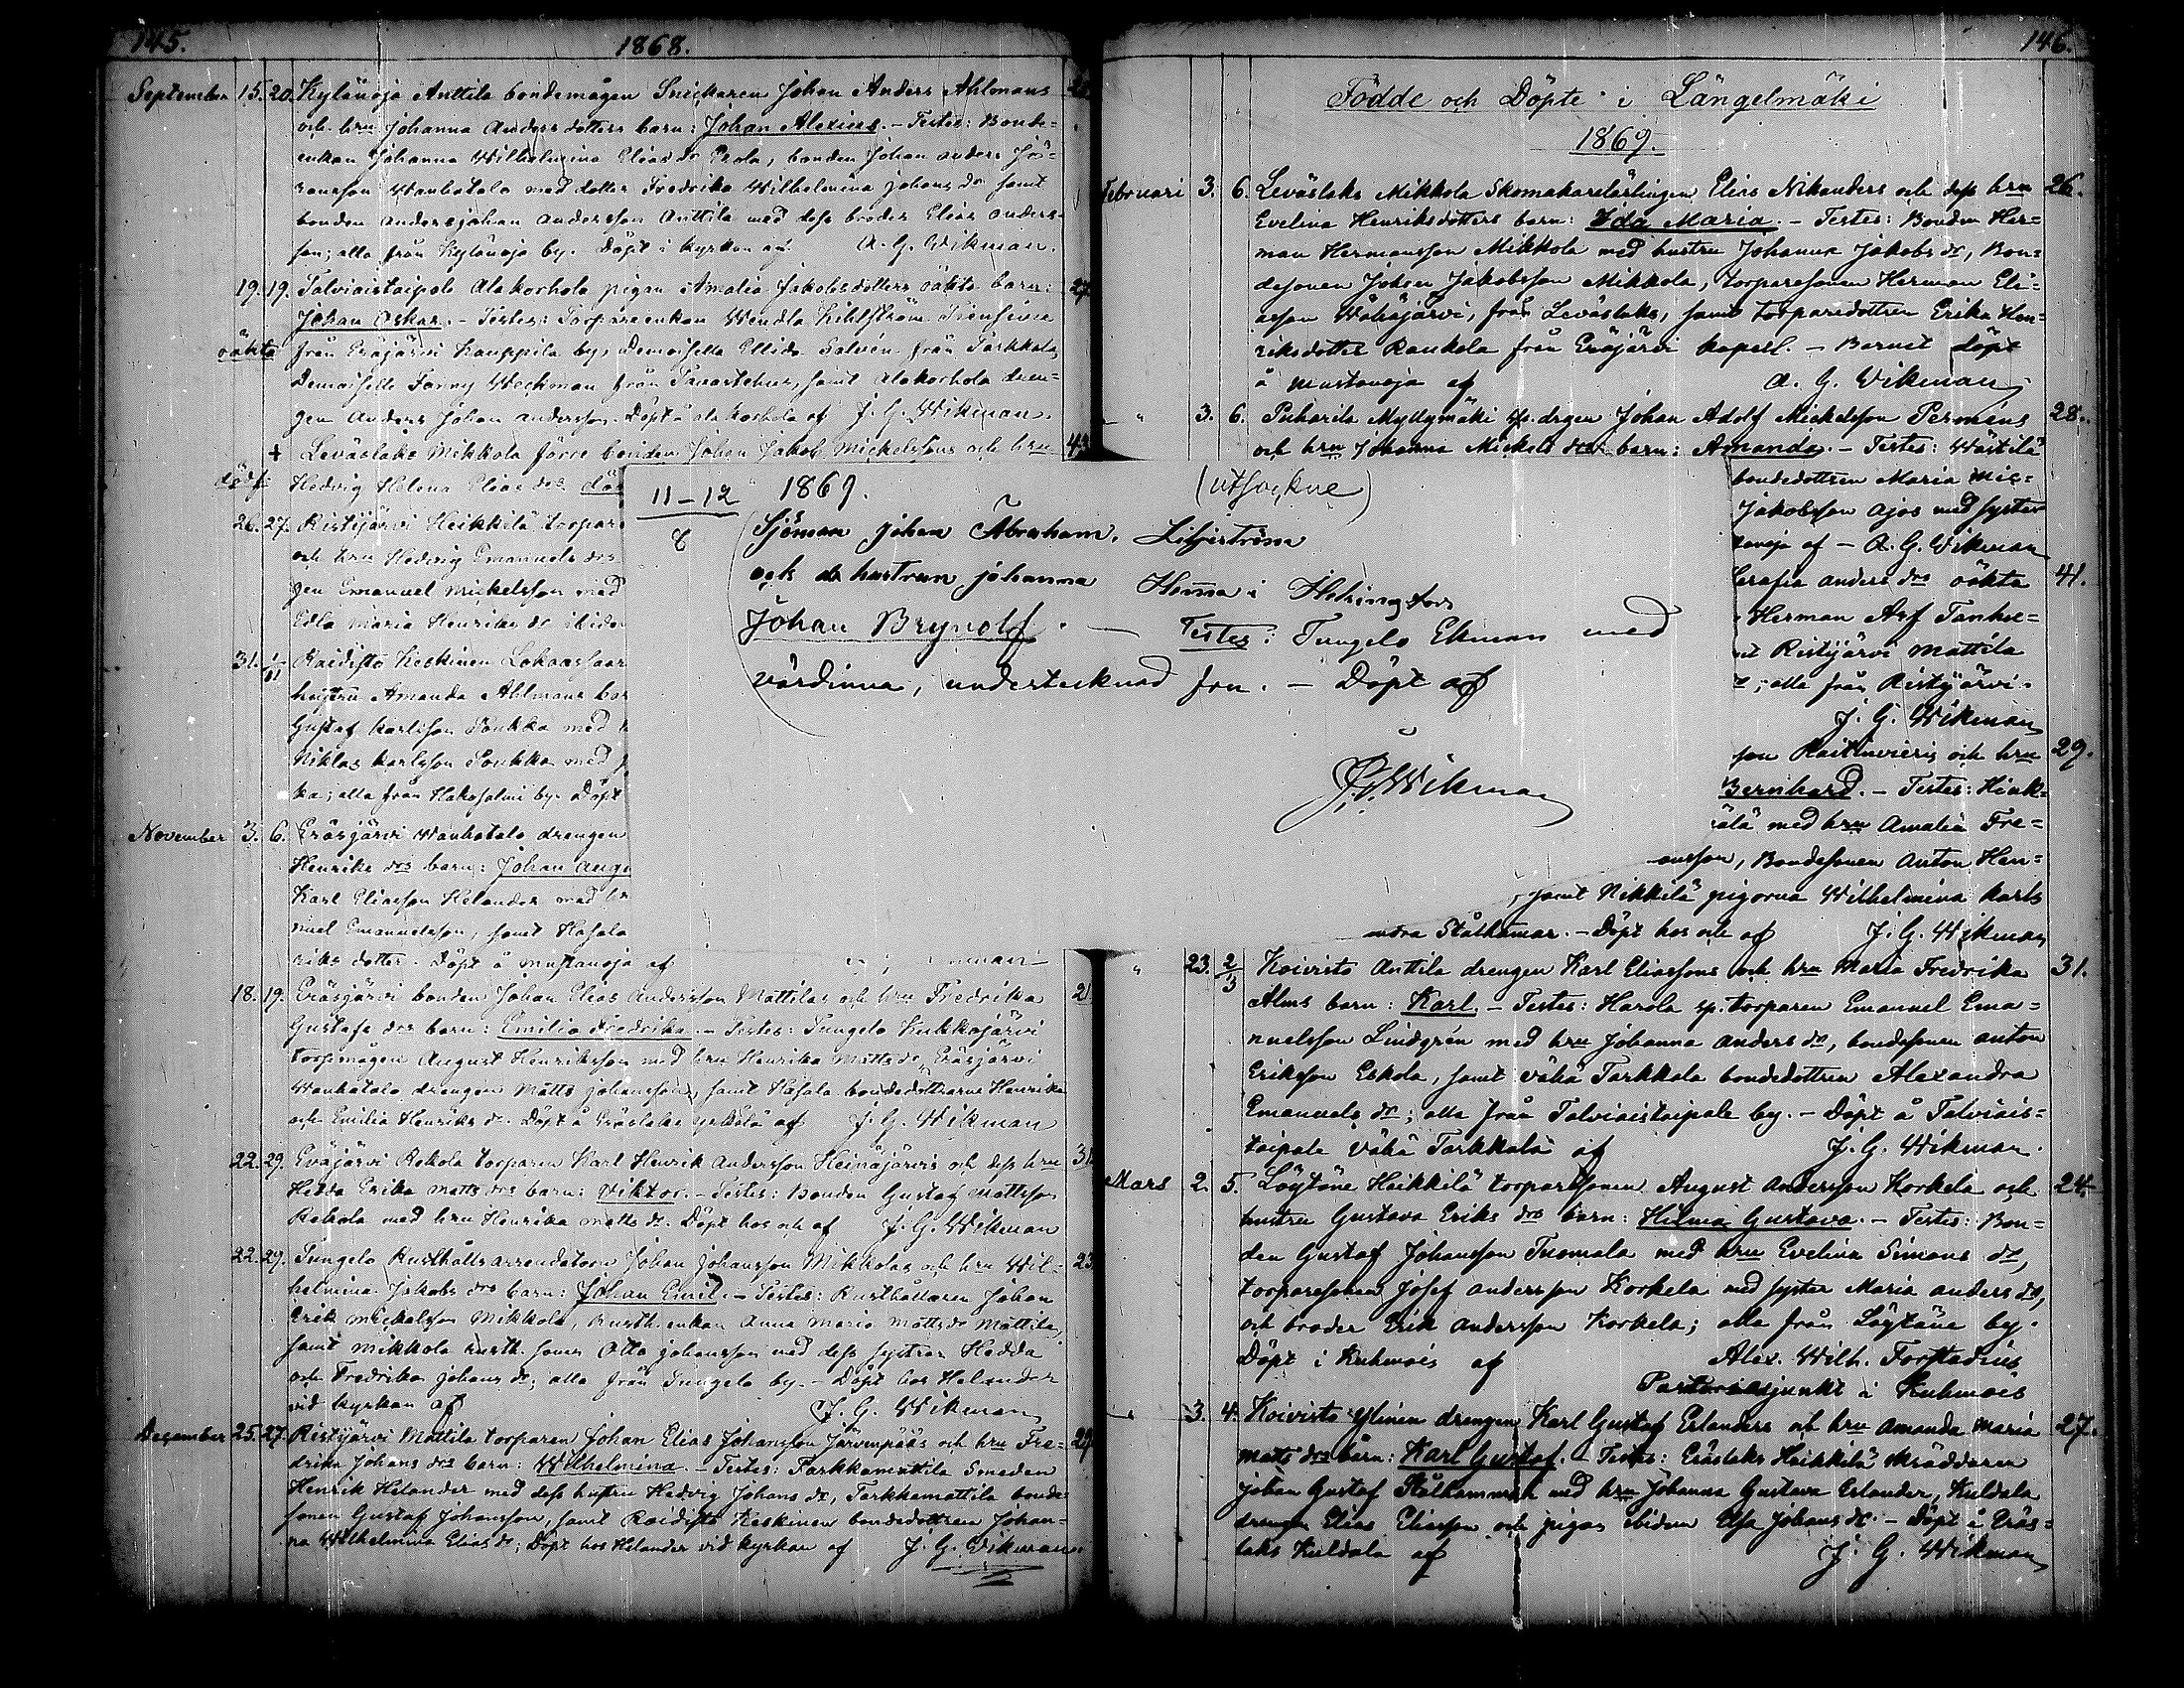 145.
1868.
September 15. 20. Kylänoja Anttila bondemågen Snickaren Johan Anders Ahlmans
och hru Johanna Anders dotters barn: Johan Alexius. - Testes: Bonde=
enkan Johanna Wilhelmina Elias dr Erola, bonden Johan Anders
Wanhatalo med dotter Fredrika Wilhelmina Johans dr samt
bonden Andersjohan Andersson Anttila med dess broder Elias Anders=
son; alla från Kylänoja by. Döpt i kyrkan af A. G. Wikman.
19. 19. Talviaistaipale Alakorhola pigan Amalia Jakobsdotters oäkta barn: 27
Johan Oskar. - Testes: Torpareenkan Wendla
oäkta från Eräjärvi Kauppila by, Demoiselle Ellida Salvén från Tarkkala,
Demoiselle Fanny Weckman från Tavastehus, samt Alakorhola dren=
gen Anders Johan Andersson. Döpt å Alakorhola af J. G. Wikman.
+ Leväslaks Mikkola förre bonden Johan Jakob Mickelssons och hru 43
dödf. Hedvig Helena Elias drs
26. 27. Ristijärvi Heikkilä torpare
och hru Hedvig Emanuels drs
gen Emanuel Mickelsson med
Edla Maria Henriks dr ibidem
31. 1/11 Raidisto Keskinen Lokaassaar
hustru Amanda Ahlmans bar
Gustaf Karlsson Poukka med
Niklas Karlsson Poukka med
ka; alla från Hakosalmi by. Döpt
November 3. 6. Eräsjärvi Wanhatalo drengen
Henriks drs barn: Johan Augu
Karl Eliasson Helander med hr
nuel Emanuelsson, samt Hasala
riks dotter. Döpt å Mustanoja af
18. 19. Eräsjärvi bonden Johan Elias Andersson Mattilas och hru Fredrika 21
Gustafs drs barn: Emilia Fredrika. - Testes: Tungelo Kukkojärvi
torpmågen August Henriksson med hru Henrika Matts dr, Eräsjärvi
Wanhatalo drengen Matts Johansson, samt Hasala bondedöttrarne Henrika
och Emilia Henriks dr. Döpt å Eräslaks Yrkölä af J. G. Wikman
22. 29. Eräjärvi Rokola torparen Karl Henrik Andersson Heinäjärvis och dess hru 31
Hedda Erika Matts drs barn: Viktor. - Testes: Bonden Gustaf Mattsson
Rokola med hru Henrika Matts dr. Döpt hos och af J. G. Wikman
22. 29. Tungelo Rusthållsarrendatorn Johan Johansson Mikkolas och hru Wil= 23
helmina Jakobs drs barn: Johan Emil. - Testes: Rusthållaren Johan
Erik Mickelsson Mikkola, rusth.enkan Anna Maria Matts dr Mattila,
samt Mikkola rusth. sonen Otto Johansson med dess systrar Hedda
och Fredrika Johans dr; alla från Tungelo by. - Döpt hos Helander
vid kyrkan af J. G. Wikman
December 25. 27. Ristijärvi Mattila torparen Johan Elias Johansson Järvenpääs och hru Fre= 29
drika Johans drs barn: Wilhelmina. - Testes: Tarkkamattila Smeden
Henrik Helander med dess hustru Hedvig Johans dr, Tarkkamattila bonde=
sonen Gustaf Johansson, samt Raidisto Keskinen bondedottren Johan=
na Wilhelmina Elias dr; Döpt hos Helander vid kyrkan af J. G. Wikman
11-12 1869. (utsockne)
8 Sjöman Johan Abraham Liljeström
och hustrun Johanna Homa i Helsingfors
Johan Brynolf. - Testes: Tungelo Ekman med
värdinna, undertecknad fru. - Döpt af
J. G. Wikman
146.
Födde och Döpte i Längelmäki
1869.
Februari 3. 6. Leväslaks Mikkola Skomakarelärlingen Elias Nikanders och dess hru 26.
Evelina Henriksdotters barn: Ida Maria. - Testes: Bonden Her=
man Hermansson Mikkola med hustru Johanna Jakobs dr, Bon=
desonen Johan Jakobsson Mikkola, torparesonen Herman Eli=
asson Wähäjärvi, från Leväslaks, samt torparedottren Erika Hen=
riksdotter Raukola från Eräjärvi kapell. - Barnet döpt
å Mustanoja af A. G. Wikman
" 3. 6. Puharila Myllymäki sp. drgen Johan Adolf Mickelsson Permans 28.
och hru Johanna Mickels drs barn: Amanda. - Testes: Wästilä
bondedottren Maria Mic=
Jakobsson Ajos med syster
tanoja af - A. G. Wikman
Serafia Anders drs oäkta 41.
Herman Arf Tanhe=
nt Ristijärvi Mattila
; alla från Ristijärvi.
J. G. Wikman
son Raitinvieris och hru 29.
Bernhard. - Testes: Heik=
älä med hru Amalia Fre=
onsson, Bondesonen Anton Hen=
, samt Nikkilä pigorna Wilhelmina Karls
andra Stålhamar. - Döpt hos och af J. G. Wikman
" 23. 2/3 Koivisto Anttila drengen Karl Eliassons och hru Maria Fredrika 31.
Alms barn: Karl. - Testes: Harola sp. torparen Emanuel Ema=
nuelsson Lindgrén med hru Johanna Anders dr, bondesonen Anton
Eriksson Eskola, samt Vähä Tarkkala bondedottren Alexandra
Emanuels dr; alla från Talviaistaipale by. - Döpt å Talviais=
taipale Vähä Tarkkala af J. G. Wikman.
Mars 2. 5. Löytäne Heikkilä torparesonen August Andersson Korkela och 24.
hustru Gustava Eriks drs barn: Hilma Gustava. - Testes: Bon=
den Gustaf Johansson Tuomala med hru Evelina Simons dr,
torparesonen Josef Andersson Korkela med syster Maria Anders dr,
och broder Erik Andersson Korkela; alla från Löytäne by.
Döpt i Kuhmois af Alex. Wilh. Forstadius
Pastorsadjunkt i Kuhmois
" 3. 4. Koivisto Ylinen drengen Karl Gustaf Erlanders och hru Amanda Maria 27.
Matts drs barn: Karl Gustaf. - Testes: Eräslaks Heikkilä skräddaren
Johan Gustaf Stålhammar med hru Johanna Gustava Erlander, Kuldala
drengen Elias Eliasson och pigan ibidem Elsa Johans dr. - Döpt å Eräs=
laks Kuldala af J. G. Wikman